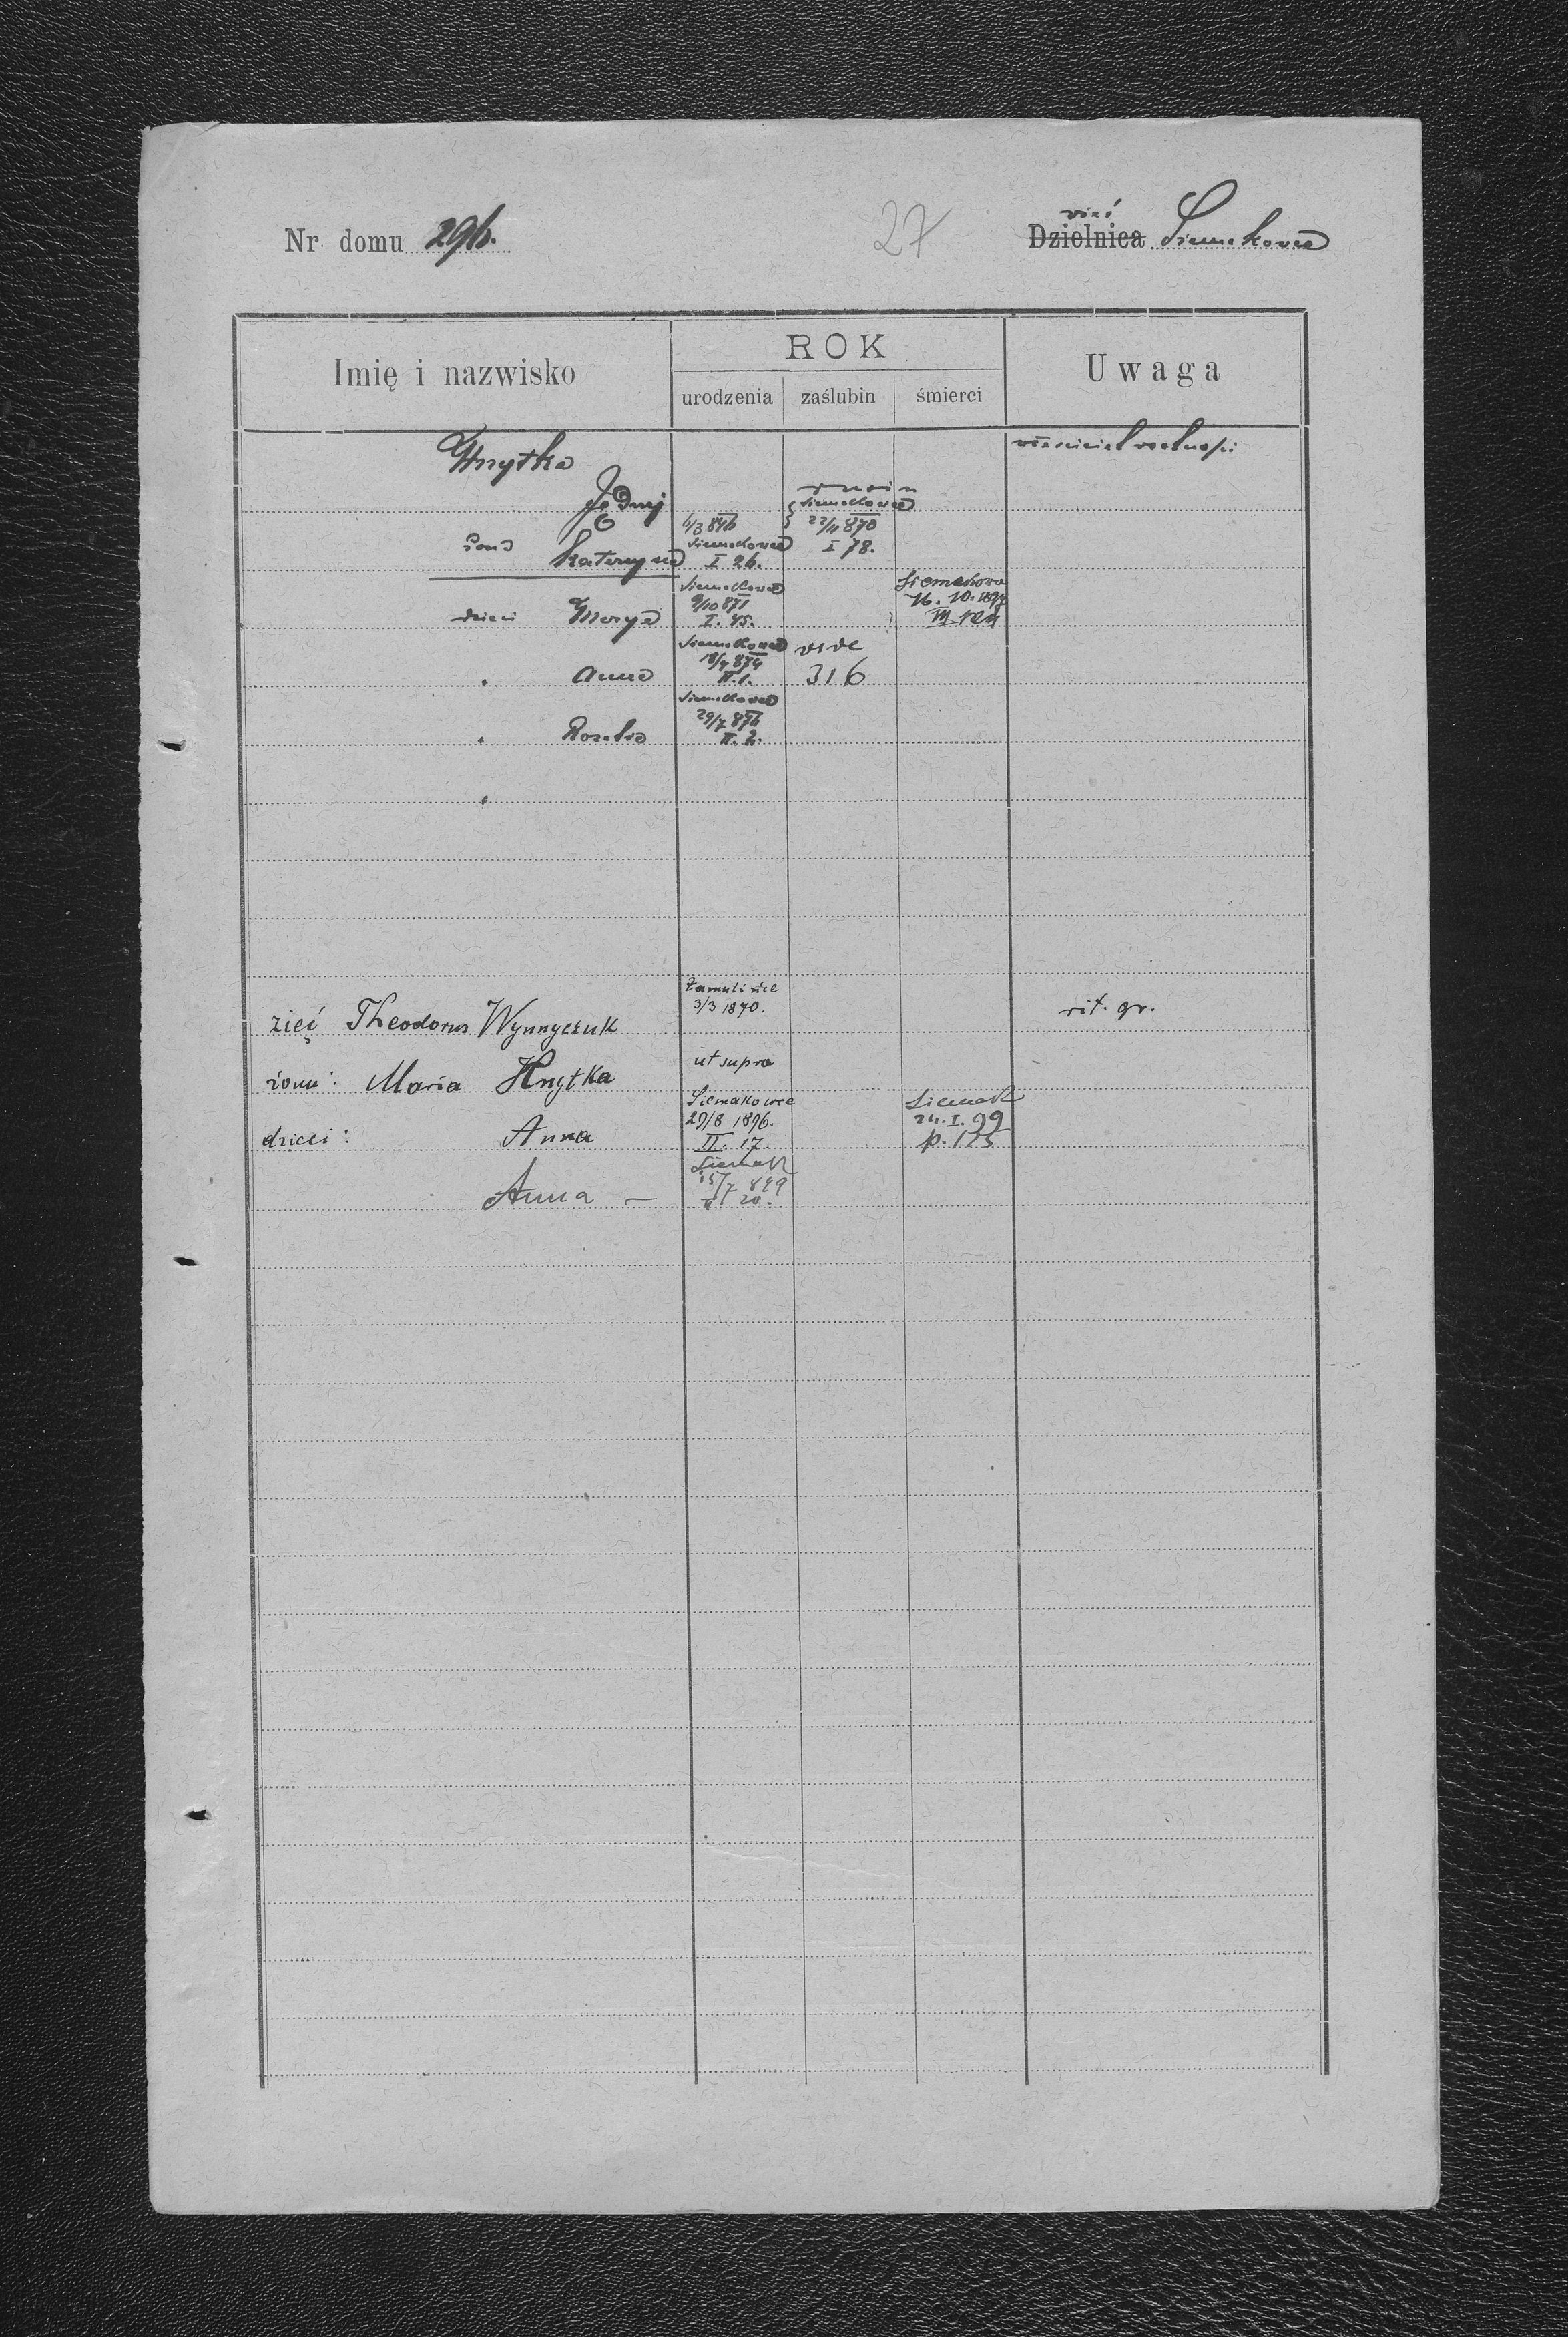 Nr domu 296.
27
wieś
Dzielnica Siemakowce
Imię i nazwisko
ROK
urodzenia zaślubin śmierci
Uwaga
Hnytka
właściciel realności
Jędrzej
żona Kateryna
6/3 846
Siemakowce
I 26.
Siemakowce
22/11 870
I 78.
dzieci Marya
Siemakowce
9/10 871
I. 45.
Siemakowce
16. 10. 1894
III
" Anna
Siemakowce
18/4 874
II. 1.
vide
316
" Rozalia
Siemakowce
29/7 876
II. 2.
"
zięć Theodorus Wynnyczuk
3/3 1870.
rit. gr.
żona: Maria Hnytka
ut supra
dzieci: Anna
Siemakowce
29/8 1896.
II. 17
Siemak
24. I. 99
p. 125
Anna —
Siemak
15/7 899
II 20.